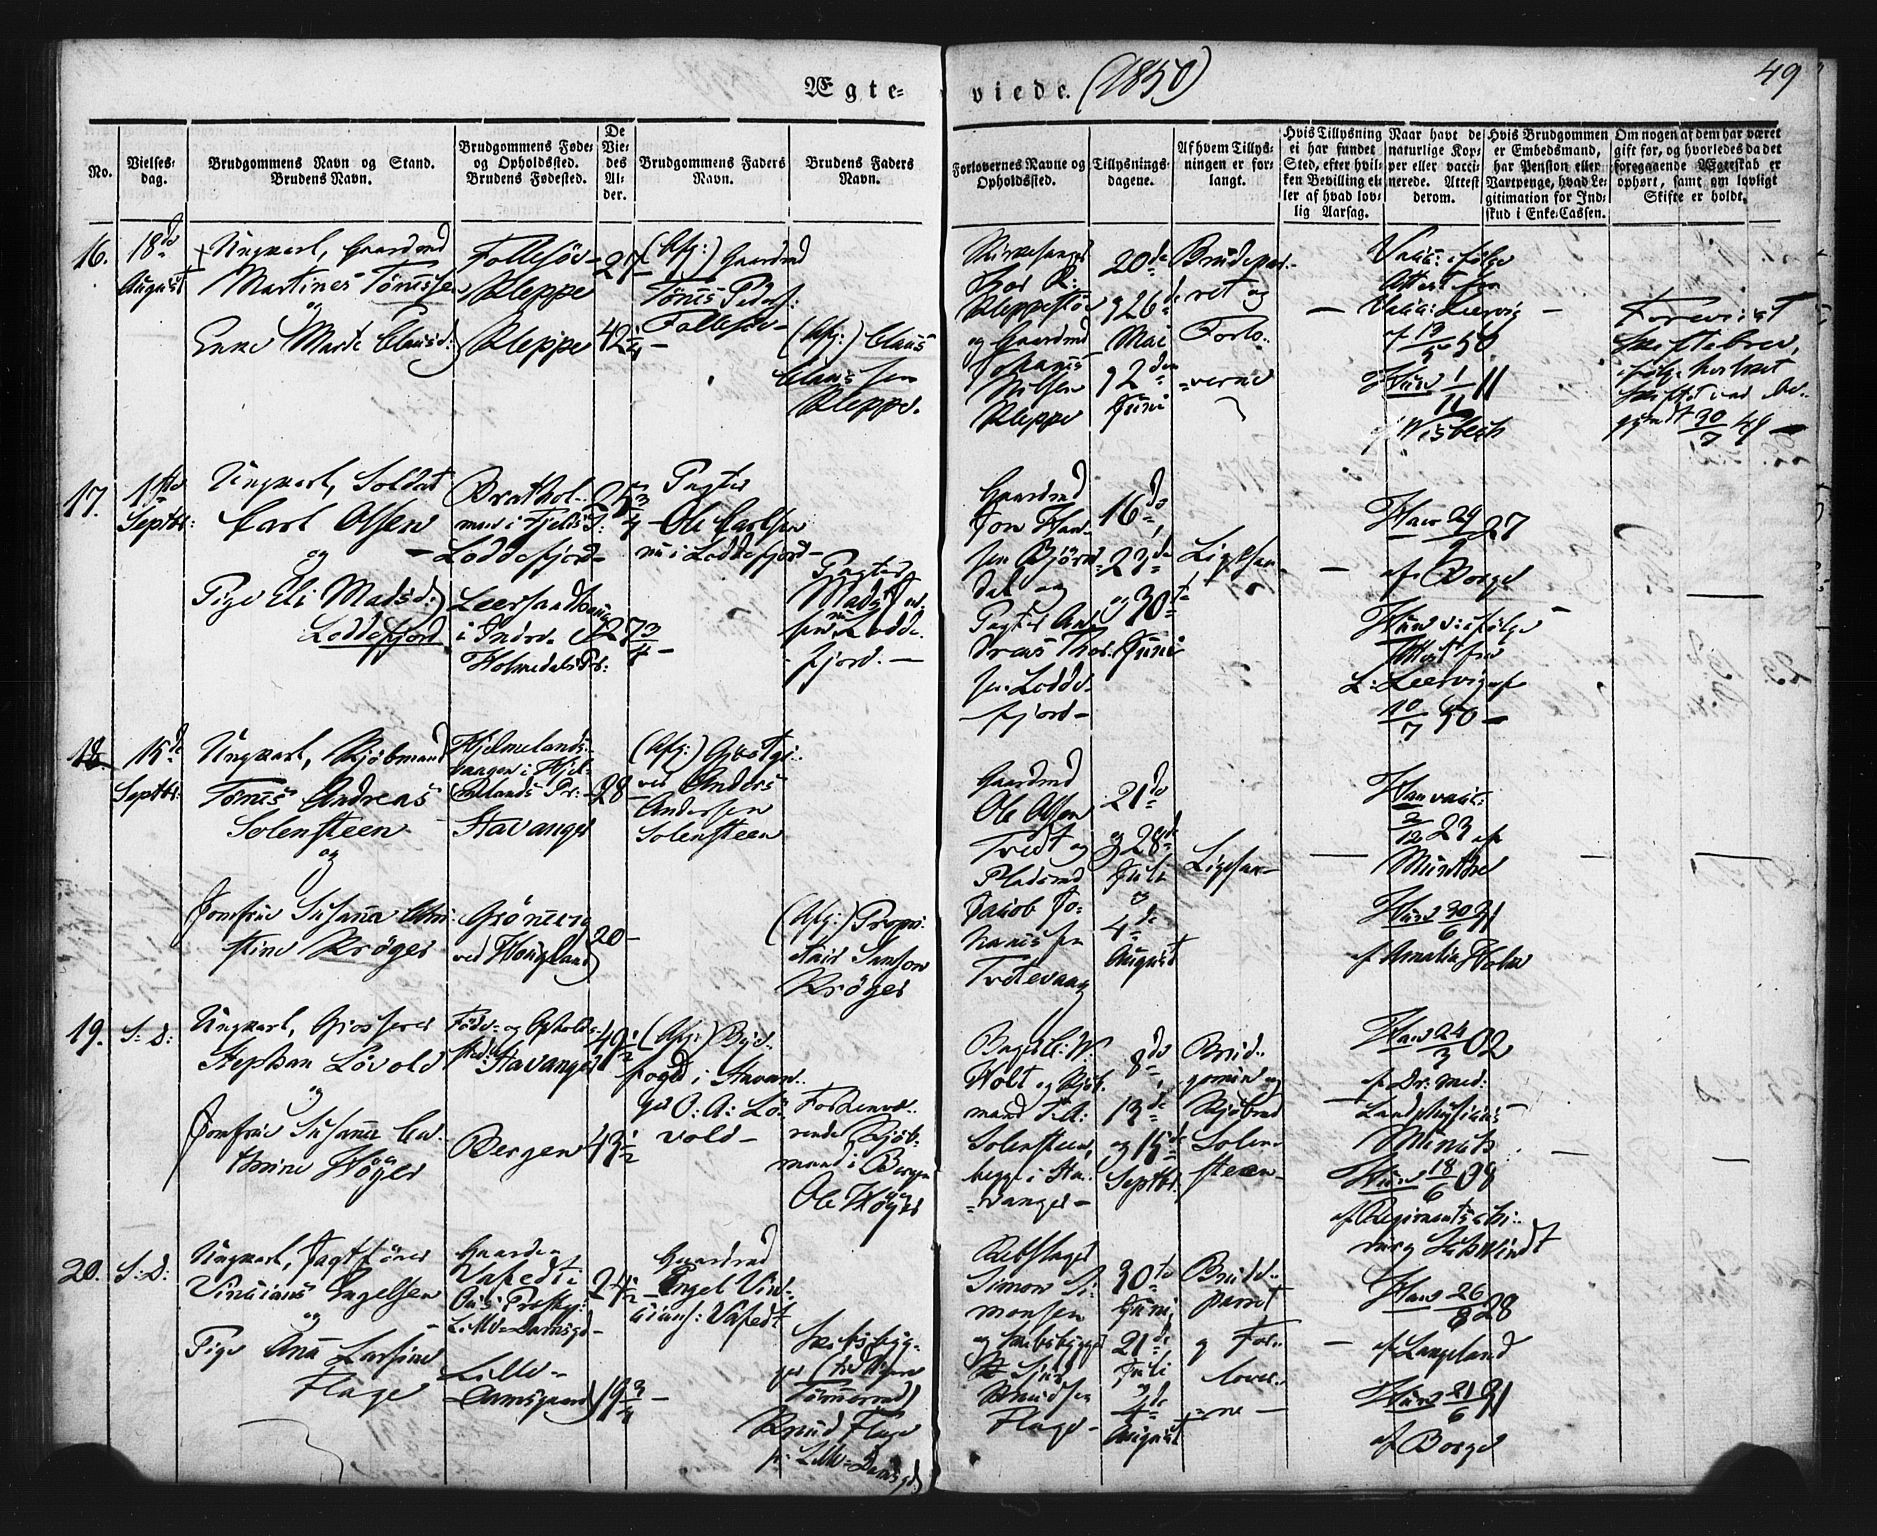 Ægte-
viede. (1850)
49
No.
Vielses-
dag.
Brudgommens Navn og Stand.
Brudens Navn.
Brudgommens Føde-
og Opholdssted.
Brudens Fødested.
De
Vie-
des
Al-
der.
Brudgommens Faders
Navn.
Brudens Faders
Navn.
Forlovernes Navne og
Opholdssted.
Tillysnings-
dagene.
Af hvem Tillys-
ningen er for-
langt.
Hvis Tillysning
ei har fundet
Sted, efter hvil-
ken Bevilling el-
ler af hvad lov-
lig Aarsag.
Naar havt de
naturlige Kop-
per eller vacci-
nerede. Attest
derom.
Hvis Brudgommen
er Embedsmand,
har Pension eller
Vartpenge, hvad Le-
gitimation for Ind-
skud i Enke-Cassen.
Om nogen af dem har været
gift før, og hvorledes da det
foregaaende Ægteskab er
ophørt, samt om lovligt
Skifte er holdt.
16.
18de
August
Ungkarl, Gaardmd
Martines Tønnessen
og
Enke Marte Clausd:
Follesöe
Kleppe
Kleppe
27
42 1/4
(Afg:) Gaardmd
Tönes Peders:
Follesöe
(Afg:) Claus
Claussen
Kleppe.
Kirkesanger
Kleppestöe
og Gaardmd
Johannes
Nilsen
Kleppe
20de
26de
Mai
2den
Juni
Brudepar-
ret og
Forlo-
verne
Vacc: ifølge
Attest fra
13/5 50
Hun 1/11 11
af Wisbech
Foreviist
Skiftebrev,
ifølge hvilket
Skiftet var be-
gyndt 30/7 49
17.
1ste
Septbr:
Ungkarl, Soldat
Carl Olsen
og
Pige Eli Madsd:
Loddefjord
Brathol-
men i Fjelds P:
Loddefjord
Leersundhaug
i Indre
Holmedals Pr:
25 3/4
27 3/4
Pagter
Ole Carlsen
nu i Loddefjord
Pagter
Mads
sen Lodde-
fjord.
Gaardmd
Jon Han-
sen Björn-
dal og
Pagter An-
dreas Thor-
sen Lodde-
fjord
16de,
23de
og 30te
Juni
Ligesaa
Ham 24/9 27
af Borge
Hun v: ifølge
Attest fra
10/7 50
18.
15de
Septbr:
Ungkarl, Kjöbmand
Tönnes Andreas
Solensteen
og
Jomfrue Susanna Chri-
stine Kröger
Hjelmelands-
vaagen i Hjel-
melands Pr:
Stavanger
Grönnevig
ved Hougland
28
20
(Afg:) Gjestgi-
ver Anders
Andersen
Solensteen
(Afg:) Propri-
etair Samson
Kröger
Gaardmd
Ole Olsen
Tvedt og
Pladsmd
Jacob Jo-
hannessen
Tvetevaag
21de
og 28de
Juli
og
4de
August
Ligesaa
Han vacc:
2/12 23 af
Munthe
Hun 30/6 31
af Amalia Holm
19.
S: D:
Ungkarl, Grosserer
Stephan Lövold
og
Jomfrue Susanna Ca-
thrine Höyer
Føde- og Opholds-
sted: Stavanger
Bergen
49 1/2
43 1/2
(Afg:) Bye-
foged i Stavan-
ger O: A: Lö-
vold
Forhenvæ-
rende Kjöb-
mand i Bergen
Ole Höyer
Bager C: W:
Holt og Kjöb-
mand T: A:
Solensteen,
begge i Sta-
vanger
8de,
13de
og 15de
Septbr.
Brud-
gommen og
Kjöbmd
Solen-
steen
Han 24/3 02
af Dr: med:
Landphysicus
Hun 18/6 08
af Regimentschi-
rurg Schwindt
20.
S: D:
Ungkarl, Jagtförer
Vincians Engelsen
og
Pige Anna Larsine
Flage
Gaarden
Vafedt i
Lille-Damsgd
Lille-
Damsgaard
24 1/2
19 3/4
Gaardmd
Engel Vin-
cians: Vafedt
Skibsbyg-
ger (tidligere
Tømmermd)
Knud Flage
p: Lille-Damsgd
Rebslager
Simon Si-
monsen
og Skibsbygger
Sjur
Knudsen
Flage
30te
Juni,
21de
Juli
og
4de
August
Brude-
parret
og For-
lover-
ne
Han 26/8 28
af Langeland
Hun 21/6 31
af Borge